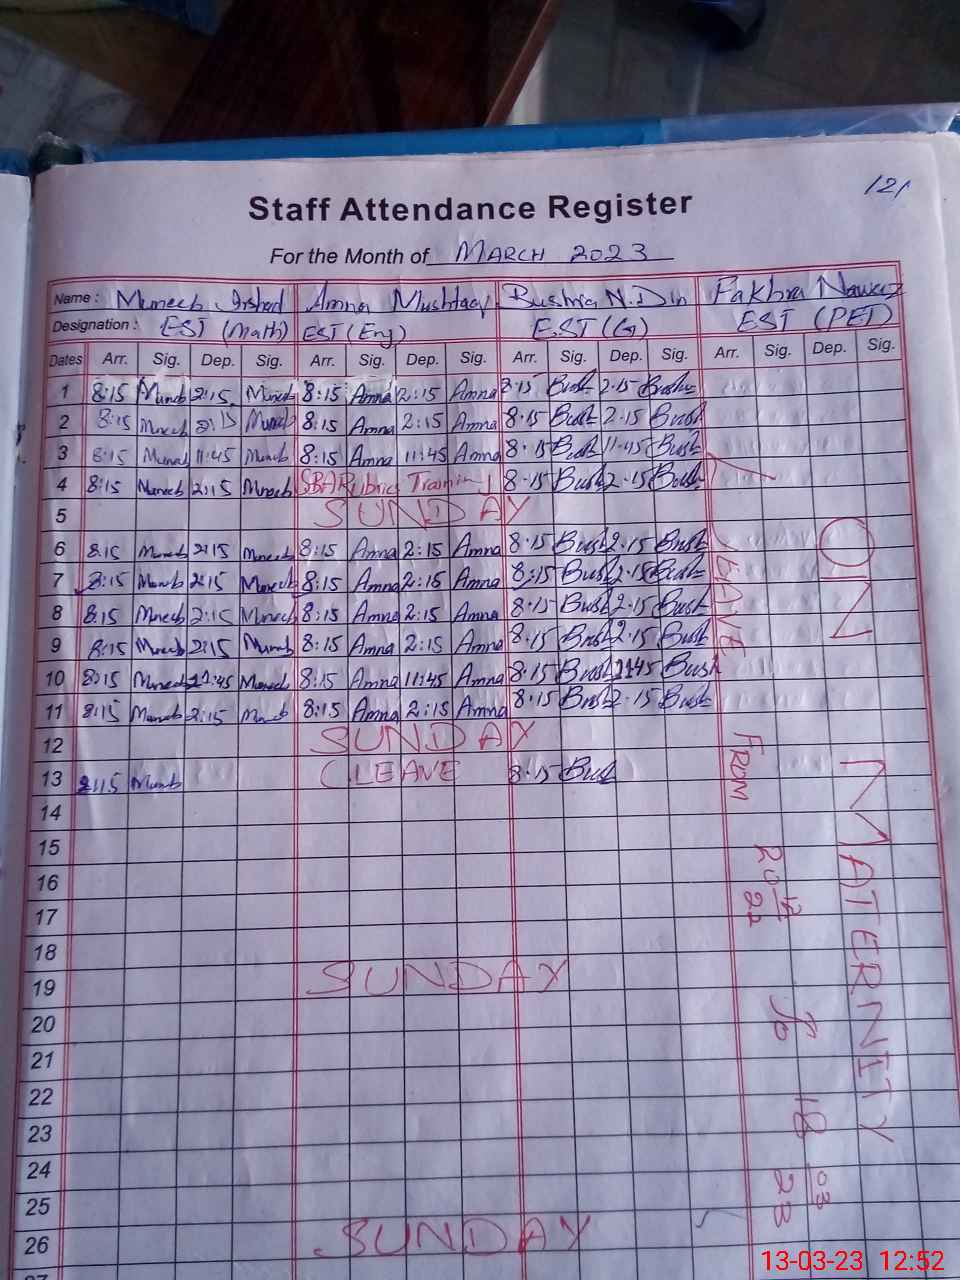 121
Staff Attendance Register
For the Month of MARCH 2023
Name : Muneeb Irshad Amna Mushtaq Bushra N.Din Fakhra Nawaz
Designation : EST (Math) EST (Eng) EST (G) EST (PET)
Dates Arr. Sig. Dep. Sig. Arr. Sig. Dep. Sig. Arr. Sig. Dep. Sig. Arr. Sig. Dep. Sig.
1 8:15 Muneeb 2:15 Muneeb 8:15 Amna 2:15 Amna 8.15 Bush 2.15 Bush
2 8:15 Muneeb 2:15 Muneeb 8:15 Amna 2:15 Amna 8.15 Bush 2.15 Bush
3 8:15 Muneeb 11:45 Muneeb 8:15 Amna 11:45 Amna 8.15 Bush 11.45 Bush
4 8:15 Muneeb 2:15 Muneeb SBA Rubric Training 8.15 Bush 2.15 Bush
5 SUNDAY
6 8:15 Muneeb 2:15 Muneeb 8:15 Amna 2:15 Amna 8.15 Bush 2.15 Bush
7 8:15 Muneeb 2:15 Muneeb 8:15 Amna 2:15 Amna 8:15 Bush 2.15 Bush
8 8:15 Muneeb 2:15 Muneeb 8:15 Amna 2:15 Amna 8.15 Bush 2.15 Bush
9 8:15 Muneeb 2:15 Muneeb 8:15 Amna 2:15 Amna 8.15 Bush 2.15 Bush
10 8:15 Muneeb 11:45 Muneeb 8:15 Amna 11:45 Amna 8.15 Bush 1145 Bush
11 8:15 Muneeb 2:15 Muneeb 8:15 Amna 2:15 Amna 8.15 Bush 2.15 Bush
12 SUNDAY
13 8:15 Muneeb CLEAVE 8.15 Bush
14
15
16
17
18
19 SUNDAY
20
21
22
23
24
25
26 SUNDAY
27
ON MATERNITY
LEAVE FROM 20 12 22 To 18 03 23
13-03-23 12:52